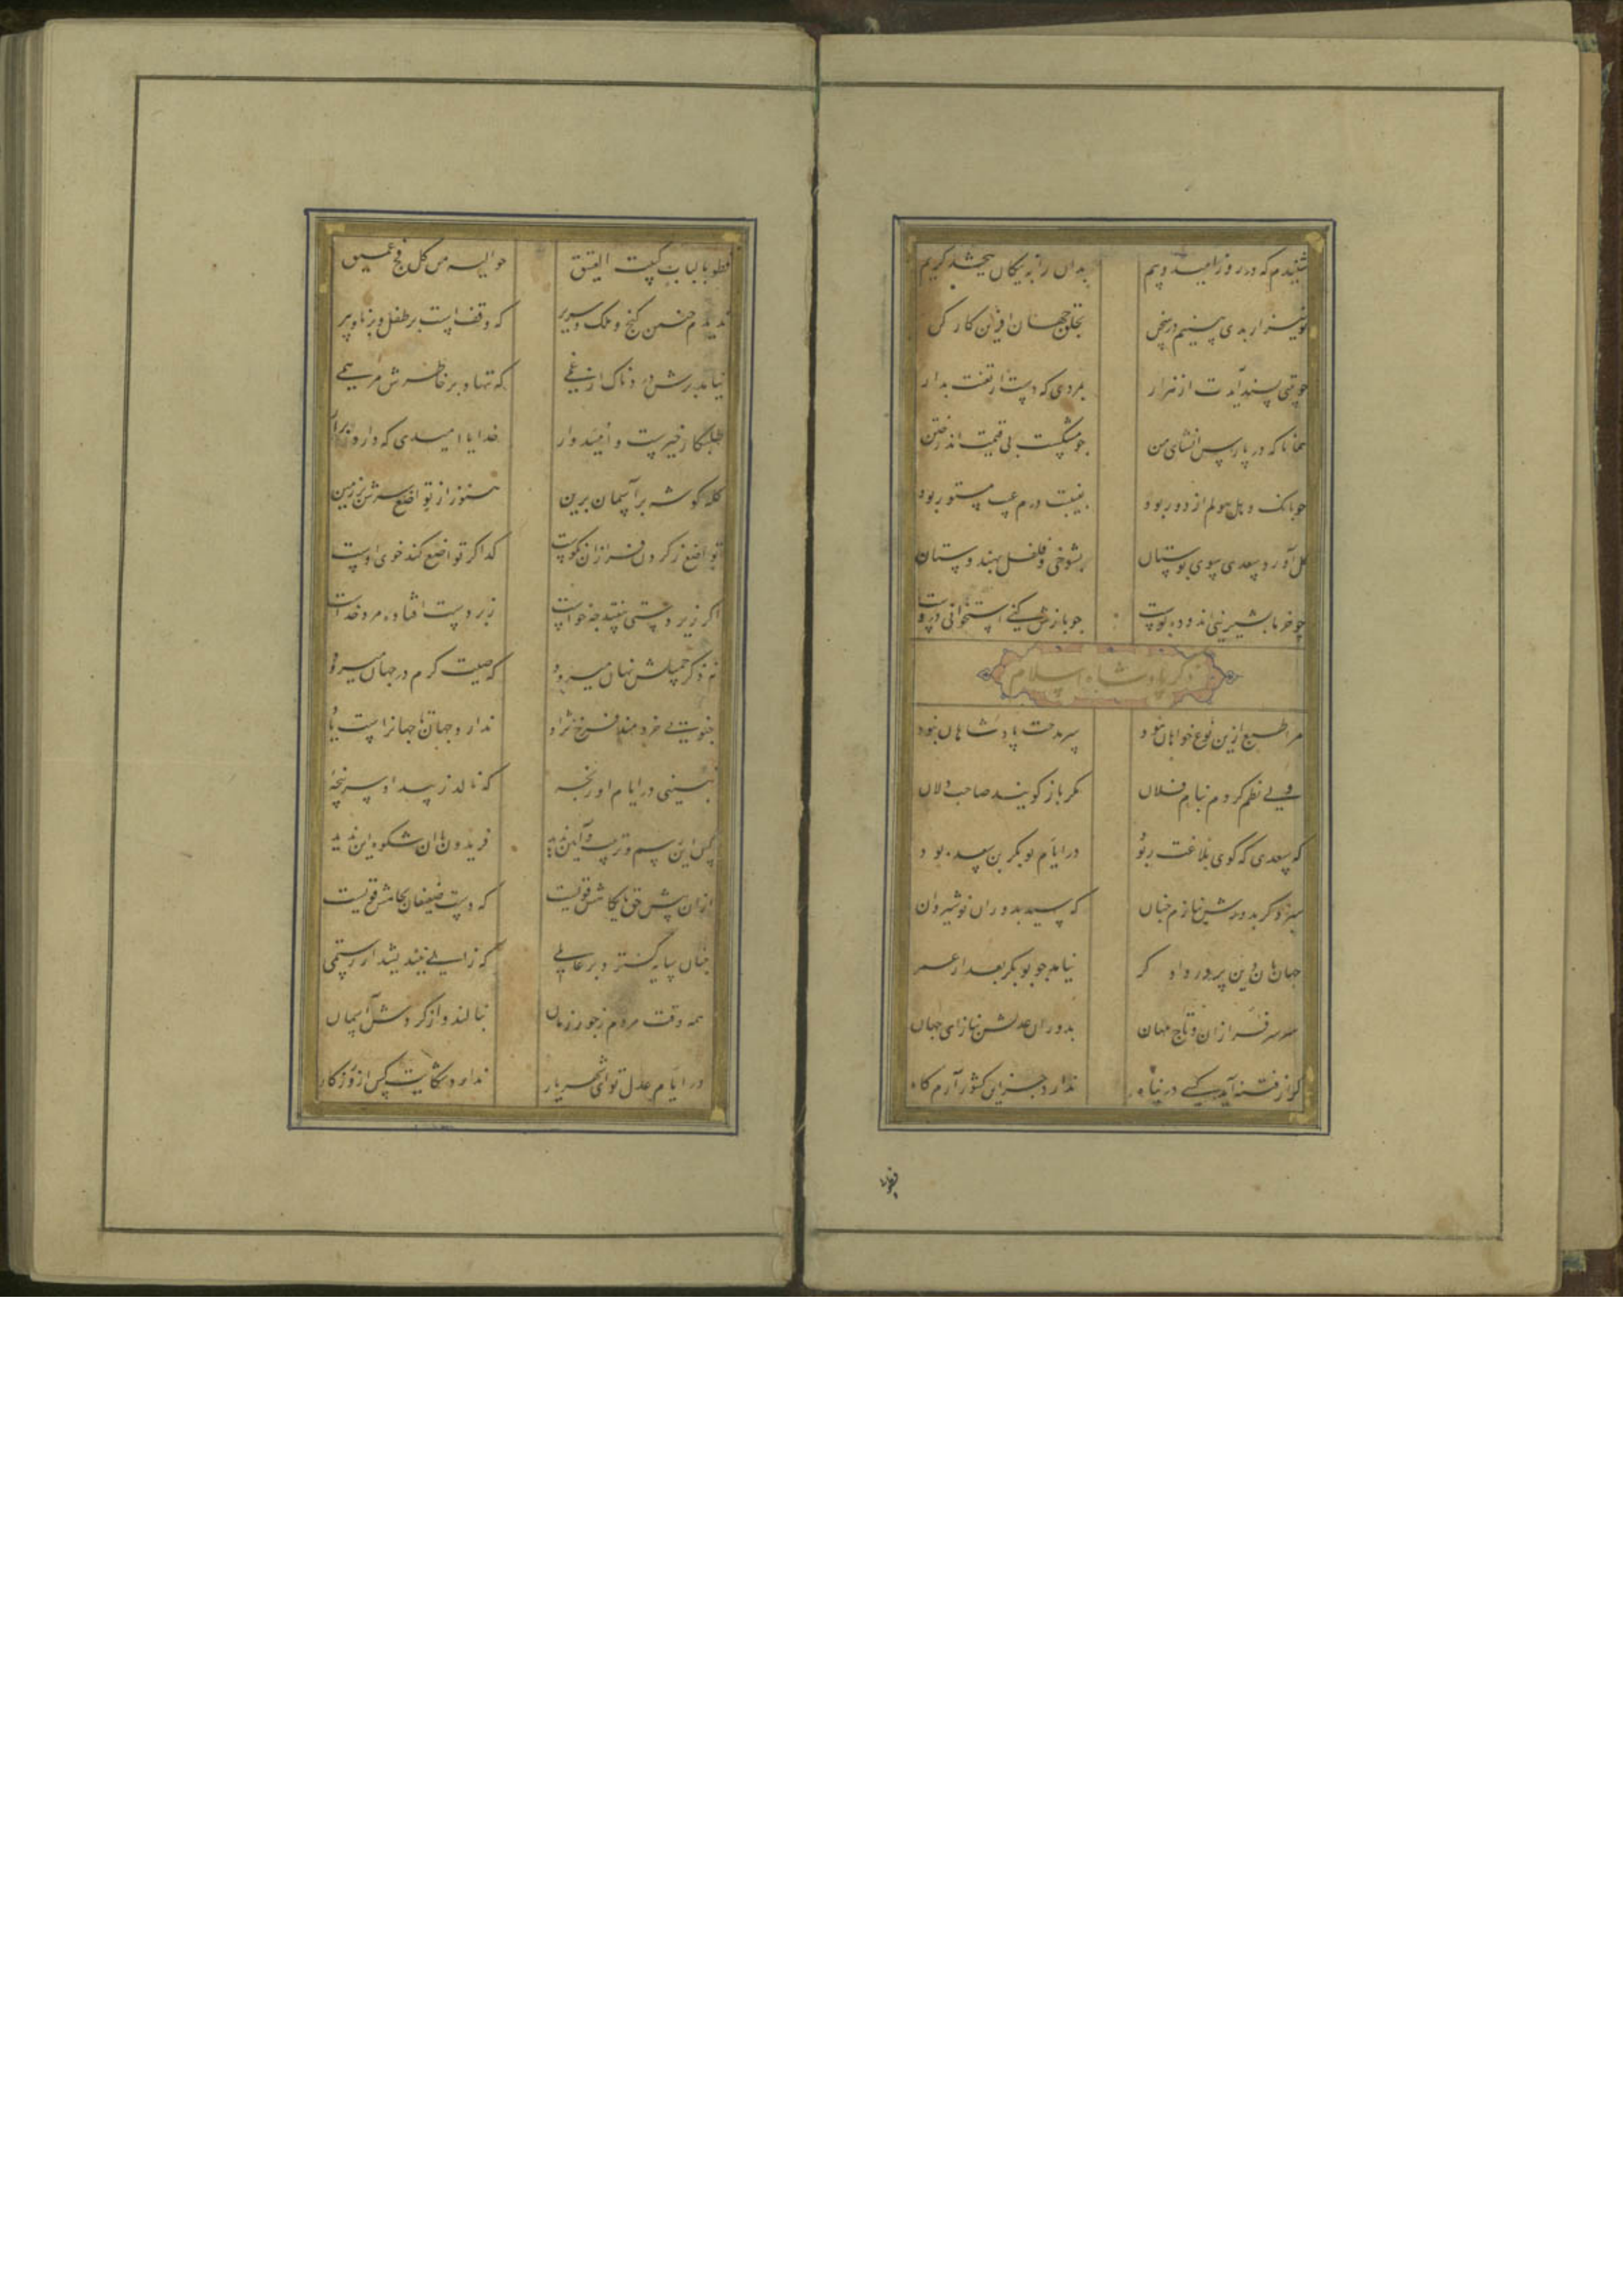 شنیدم که در روز امید و بیم بدان را به نیکان ببخشد کریم
تو نیز ار بدی بینیم در سخن بخلق جهان آفرین کار کن
چو بیتی پسند آیدت از هزار بمردی که دست از تعنت بدار
همانا که در پارس انشای من چو مشکست بی قیمت اندر ختن
چو بانک دهل هولم از دور بود بغیبت درم عیب مستور بود
گل آورد سعدی سوی بوستان بشوخی و فلفل بهندوستان
چو خرما بشیرینی اندوده پوست چو بازش کنی استخوانی دروست
ذکر پادشاه اسلام
مرا طبع ازین نوع خواهان نبود سر مدحت پادشاهان نبود
ولی نظم کردم بنام فلان مگر باز گویند صاحب دلان
که سعدی که گوی بلاغت ربود در ایام بوبکر بن سعد بود
سزد گر بدورش بنازم چنان که سید بدوران نوشیروان
جهانبان دین پرور دادگر نیامد چو بوبکر بعد از عمر
سر سرفرازان و تاج مهان بدوران عدلش بناز ای جهان
گر از فتنه آید کسی در پناه ندارد جز این کشور آرامگاه
فطوبی
فطوبا لباب کبیت العتیق حوالیه من کل فج عمیق
ندیدم چنین گنج و ملک و سریر که وقفست بر طفل و برنا و پیر
نیامد برش دردناک از غمی که ننهاد بر خاطرش مرهمی
طلبکار خیرست و امیدوار خدایا امیدی که دارد برآر
کله گوشه بر آسمان برین هنوز از تواضع سرش بر زمین
تواضع ز گردن فرازان نکوست گدا گر تواضع کند خوی اوست
اگر زیردستی بیفتد چه خاست زبردست افتاده مرد خداست
نه ذکر جمیلش نهان میرود که صیت کرم در جهان میرود
چنویی خردمند فرخ نژاد ندارد جهان تا جهانست یاد
نبینی در ایام او رنجه که نالد ز بیداد سرپنجه
کس این رسم و ترتیب و آیین ندید فریدون با آن شکوه این ندید
از آن پیش حق پایگاهش قویست که دست ضعیفان بجاهش قویست
چنان سایه گسترد بر عالمی که زالی نیندیشد از رستمی
همه وقت مردم ز جور زمان بنالند و از گردش آسمان
در ایام عدل تو ای شهریار ندارد شکایت کس از روزگار